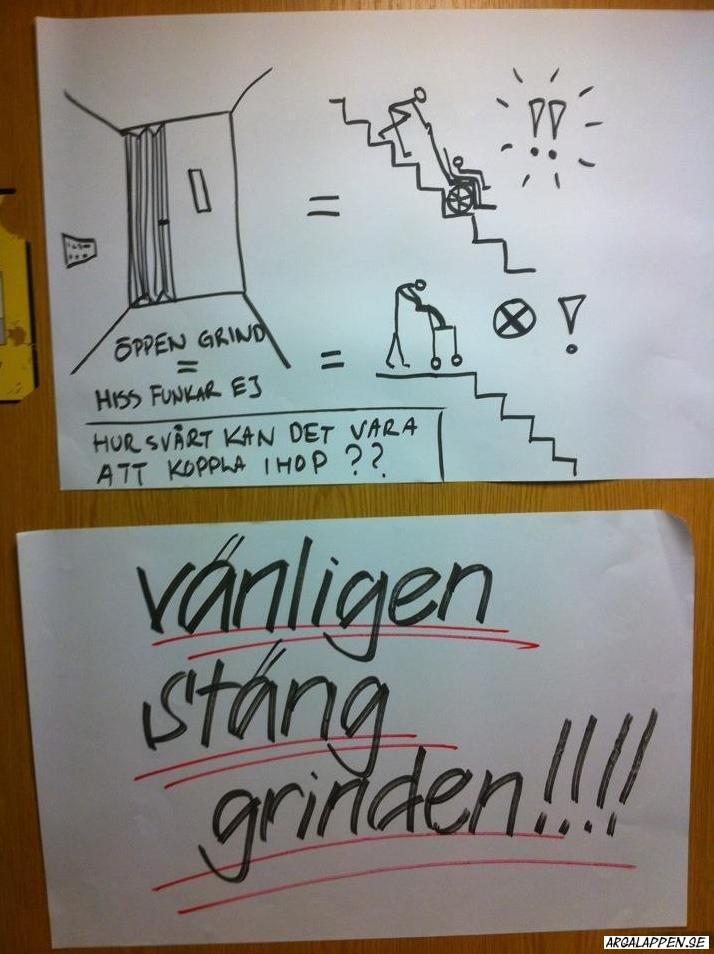 !!
=
ÖPPEN GRIND
=
HISS FUNKAR EJ
=
!
HUR SVÅRT KAN DET VARA
ATT KOPPLA IHOP ??
vänligen
stäng
grinden!!!!
ARGALAPPEN.SE